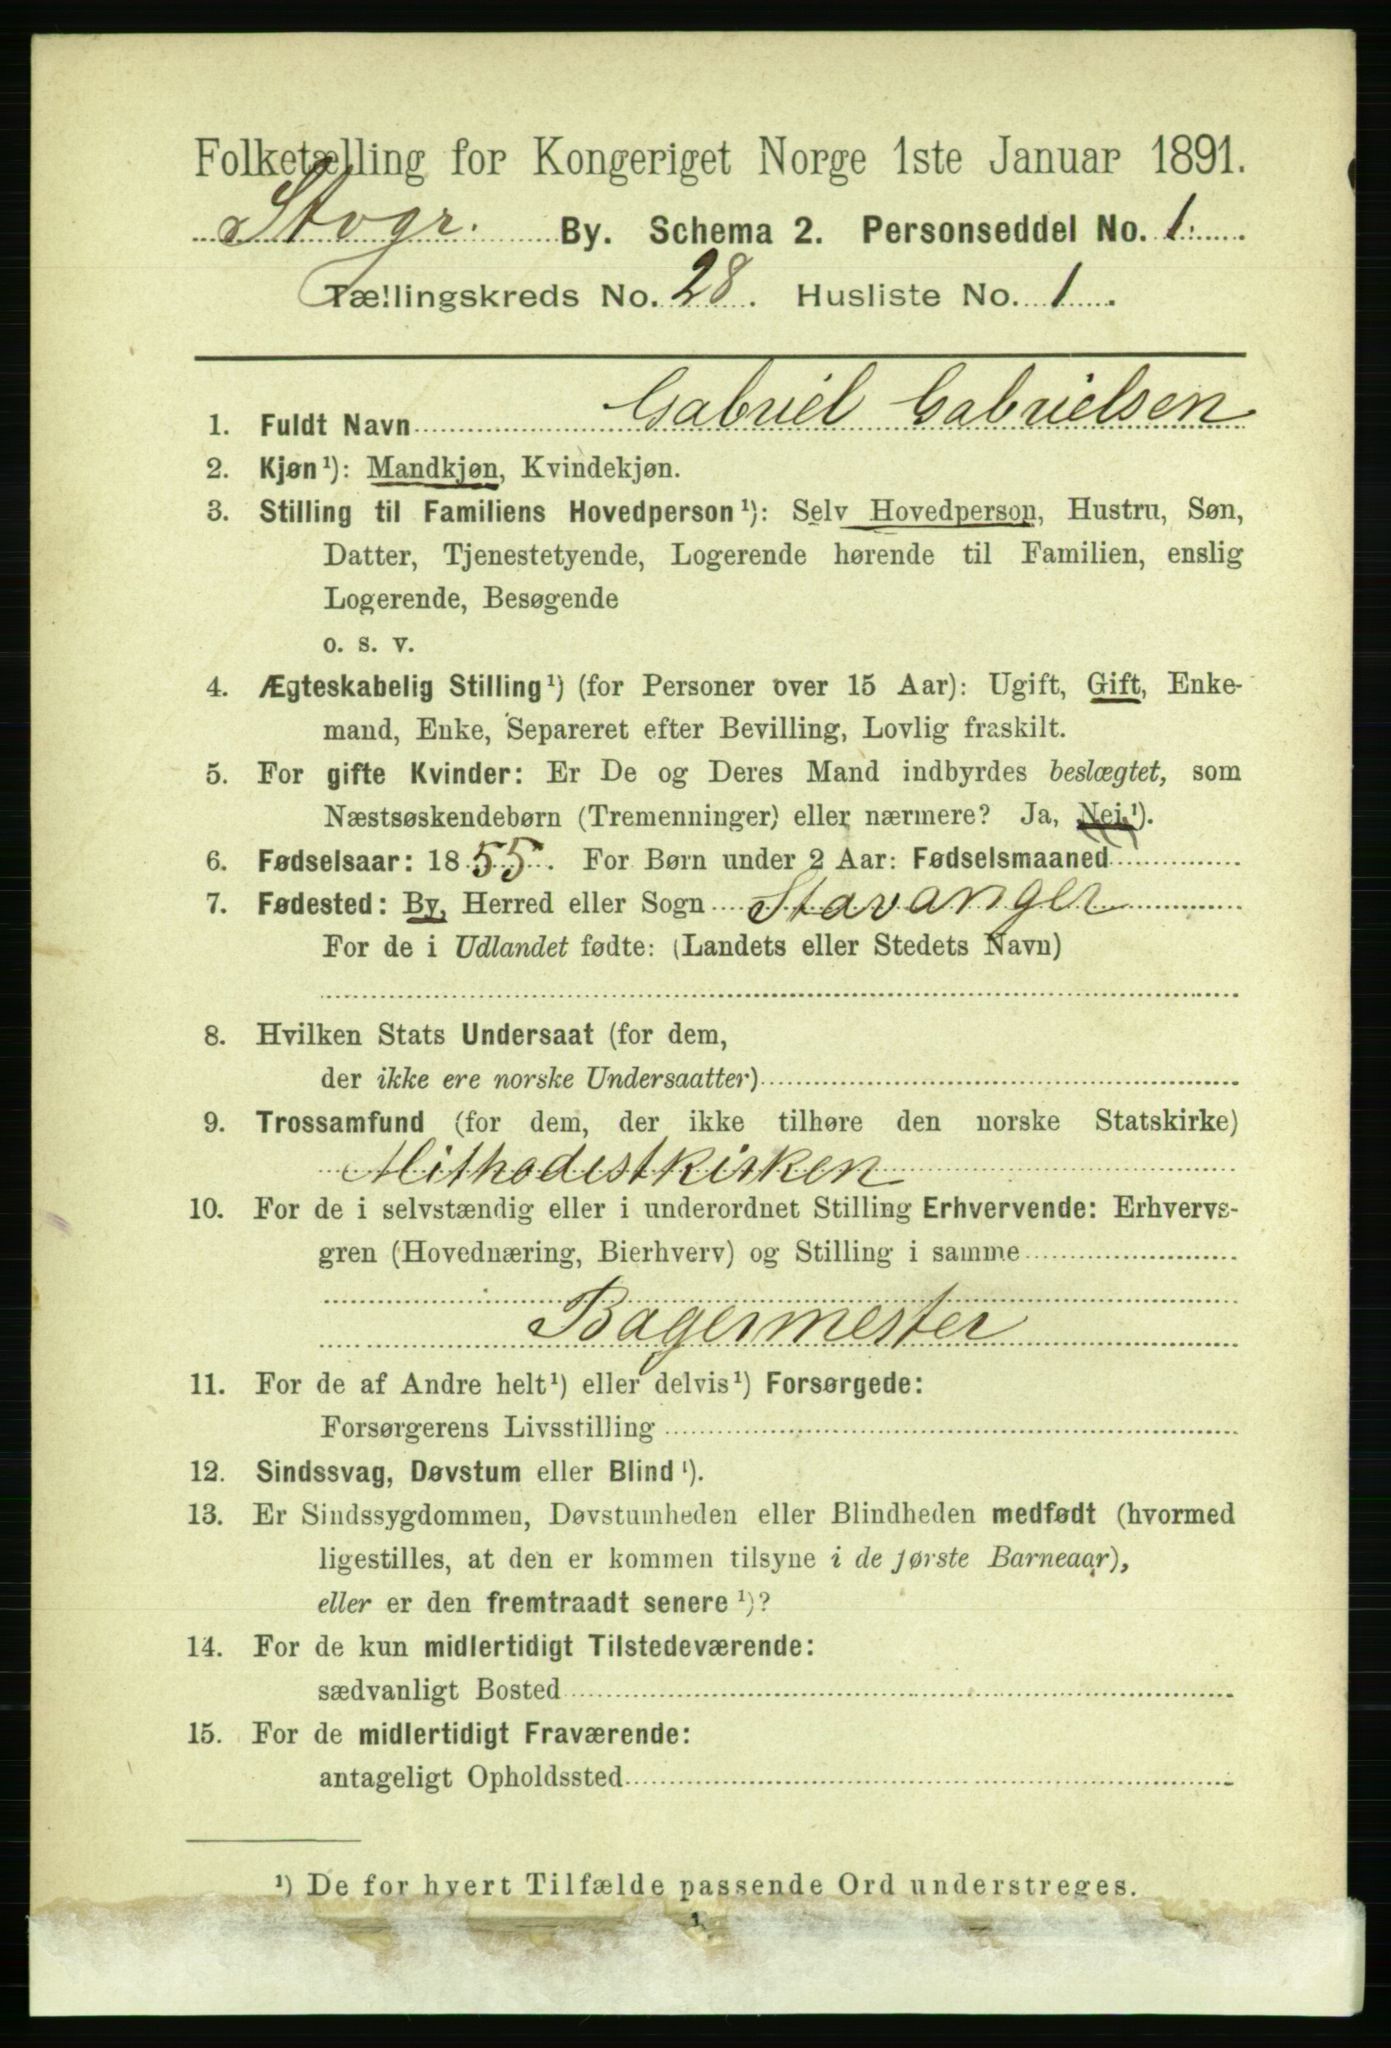 Folketælling for Kongeriget Norge 1ste Januar 1891.
Stvgr. By. Schema 2. Personseddel No. 1.
Tællingskreds No. 28. Husliste No. 1.
1. Fuldt Navn Gabriel Gabrielsen
2. Kjøn¹): Mandkjøn, Kvindekjøn.
3. Stilling til Familiens Hovedperson¹): Selv Hovedperson, Hustru, Søn,
Datter, Tjenestetyende, Logerende hørende til Familien, enslig
Logerende, Besøgende
o. s. v.
4. Ægteskabelig Stilling¹) (for Personer over 15 Aar): Ugift, Gift, Enke-
mand, Enke, Separeret efter Bevilling, Lovlig fraskilt.
5. For gifte Kvinder: Er De og Deres Mand indbyrdes beslægtet, som
Næstsøskendebørn (Tremenninger) eller nærmere? Ja, Nei.¹).
6. Fødselsaar: 1855. For Børn under 2 Aar: Fødselsmaaned
7. Fødested: By, Herred eller Sogn Stavanger
For de i Udlandet fødte: (Landets eller Stedets Navn)
8. Hvilken Stats Undersaat (for dem,
der ikke ere norske Undersaatter)
9. Trossamfund (for dem, der ikke tilhøre den norske Statskirke)
Mithodistkirken
10. For de i selvstændig eller i underordnet Stilling Erhvervende: Erhvervs-
gren (Hovednæring, Bierhverv) og Stilling i samme
Bagermester
11. For de af Andre helt¹) eller delvis¹) Forsørgede:
Forsørgerens Livsstilling
12. Sindssvag, Døvstum eller Blind¹).
13. Er Sindssygdommen, Døvstumheden eller Blindheden medfødt (hvormed
ligestilles, at den er kommen tilsyne i de første Barneaar),
eller er den fremtraadt senere¹)?
14. For de kun midlertidigt Tilstedeværende:
sædvanligt Bosted
15. For de midlertidigt Fraværende:
antageligt Opholdssted
¹) De for hvert Tilfælde passende Ord understreges.
1